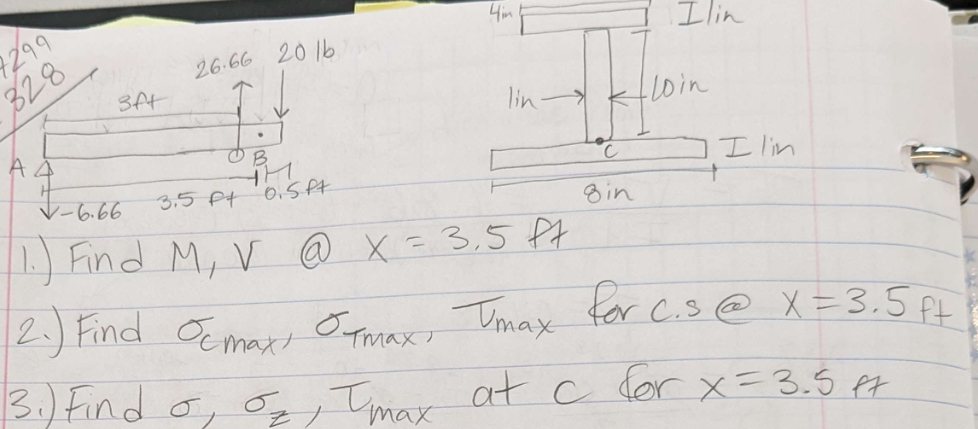 +299
328
4in
I 1in
26.66 20 lb
3ft
1in
10in
A
B
C
I 1in
-6.66
3.5 ft 0.5 ft
8in
1.) Find M, V @ x = 3.5 ft
2.) Find σcmax, στmax, τmax for c.s @ x = 3.5 ft
3.) Find σ, σz, τmax at c for x = 3.5 ft